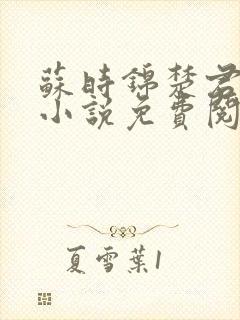 蘇時錦楚君
小說免費閱
夏雪葉1